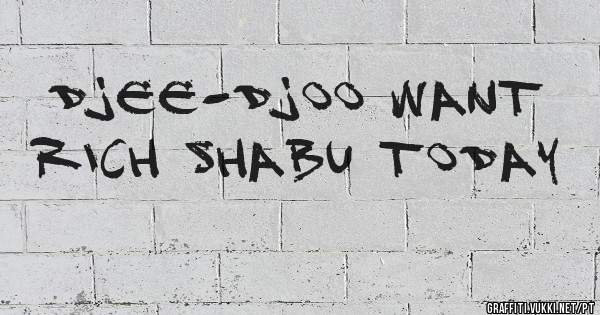 DJEE-DJOO WANT
RICH SHABU TODAY
GRAFFITI.VUKKI.NET/PT